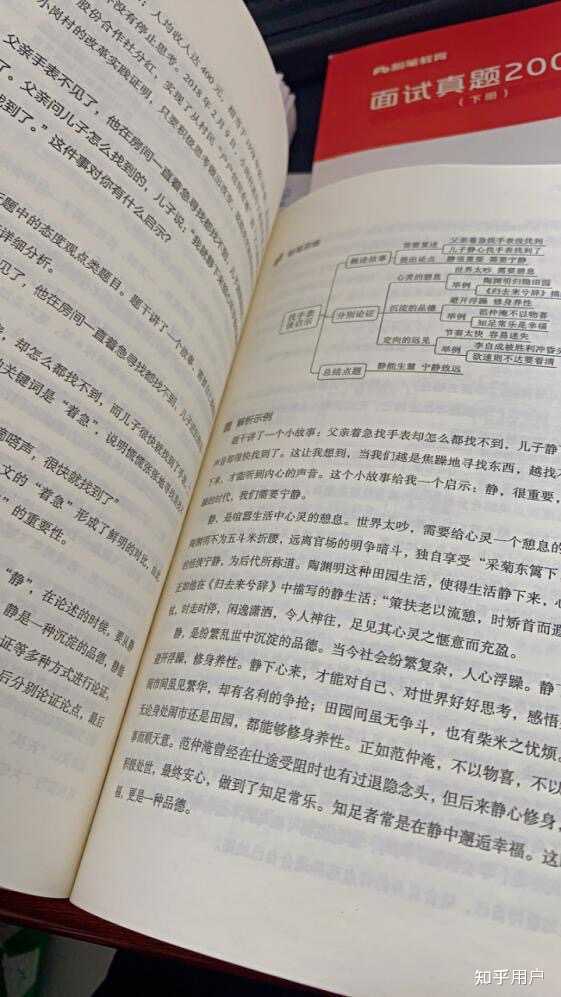 人均收入达 400 元，
没有停止思考。2018 年 2 月 9 日，小岗
股份合作社分红，实现了从村民
小岗村的改革实践证明，只要积极思考
父亲手表不见了，他在房间一直着急寻找都找不到，
了。父亲问儿子怎么找到的，儿子说：“我就静下来
找到了。”这件事对你有什么启示？
题中的态度观点类题目。题干讲了一个故事，
详细分析。
见了，他在房间一直着急寻找都找不到，
却怎么都找不到，而儿子很快就找到了手表
关键词是“着急”，说明慌慌张张地寻找是
滴嗒声，很快就找到了”
文的“着急”形成了鲜明的对比，
”的重要性。
“静”，在论述的时候，要从静
静是一种沉淀的品德，静能
证等多种方式进行论证，
后分别论证论点，最后
粉笔教育
面试真题200
（下册）
找手表
谈启示
概述故事
父亲着急找手表没找到
儿子静心找手表找到了
提出论点
静很重要 需要宁静
分别论证
心灵的憩息
世界太吵 需要憩息
举例
陶渊明归隐田园
《归去来兮辞》
沉淀的品德
避开浮躁 修身养性
举例
范仲淹不以物喜
知足常乐是幸福
定向的远见
节奏太快 容易迷失
举例
李自成被胜利冲昏头
欲速则不达要看清
总结点题
静能生慧 宁静致远
解析示例
题干讲了一个小故事：父亲着急找手表却怎么都找不到，儿子静下
声音却很快找到了。这让我想到，当我们越是焦躁地寻找东西，越找不
下来，才能听到内心的声音。这个小故事给我一个启示：静，很重要，
的时代，我们需要宁静。
静，是喧嚣生活中心灵的憩息。世界太吵，需要给心灵一个憩息的
陶渊明不为五斗米折腰，远离官场的明争暗斗，独自享受“采菊东篱下
的纯侠宁静，为后代所称道。陶渊明这种田园生活，使得生活静下来，心
正如他在《归去来兮辞》中描写的静生活：“策扶老以流憩，时矫首而遐
杖，时走时停，闲逸潇洒，令人神往，足见其心灵之惬意而充盈。
静，是纷繁乱世中沉淀的品德。当今社会纷繁复杂，人心浮躁。静下
避开浮躁，修身养性。静下心来，才能对自己、对世界好好思考，感悟
闹市间虽见繁华，却有名利的争抢；田园间虽无争斗，也有柴米之忧烦。
无论身处闹市还是田园，都能够修身养性。正如范仲淹，不以物喜，不以
事而顺天意。范仲淹曾经在仕途受阻时也有过退隐念头，但后来静心修身，
积极处世，最终安心，做到了知足常乐。知足者常是在静中邂逅幸福。这
福，更是一种品德。
知乎用户